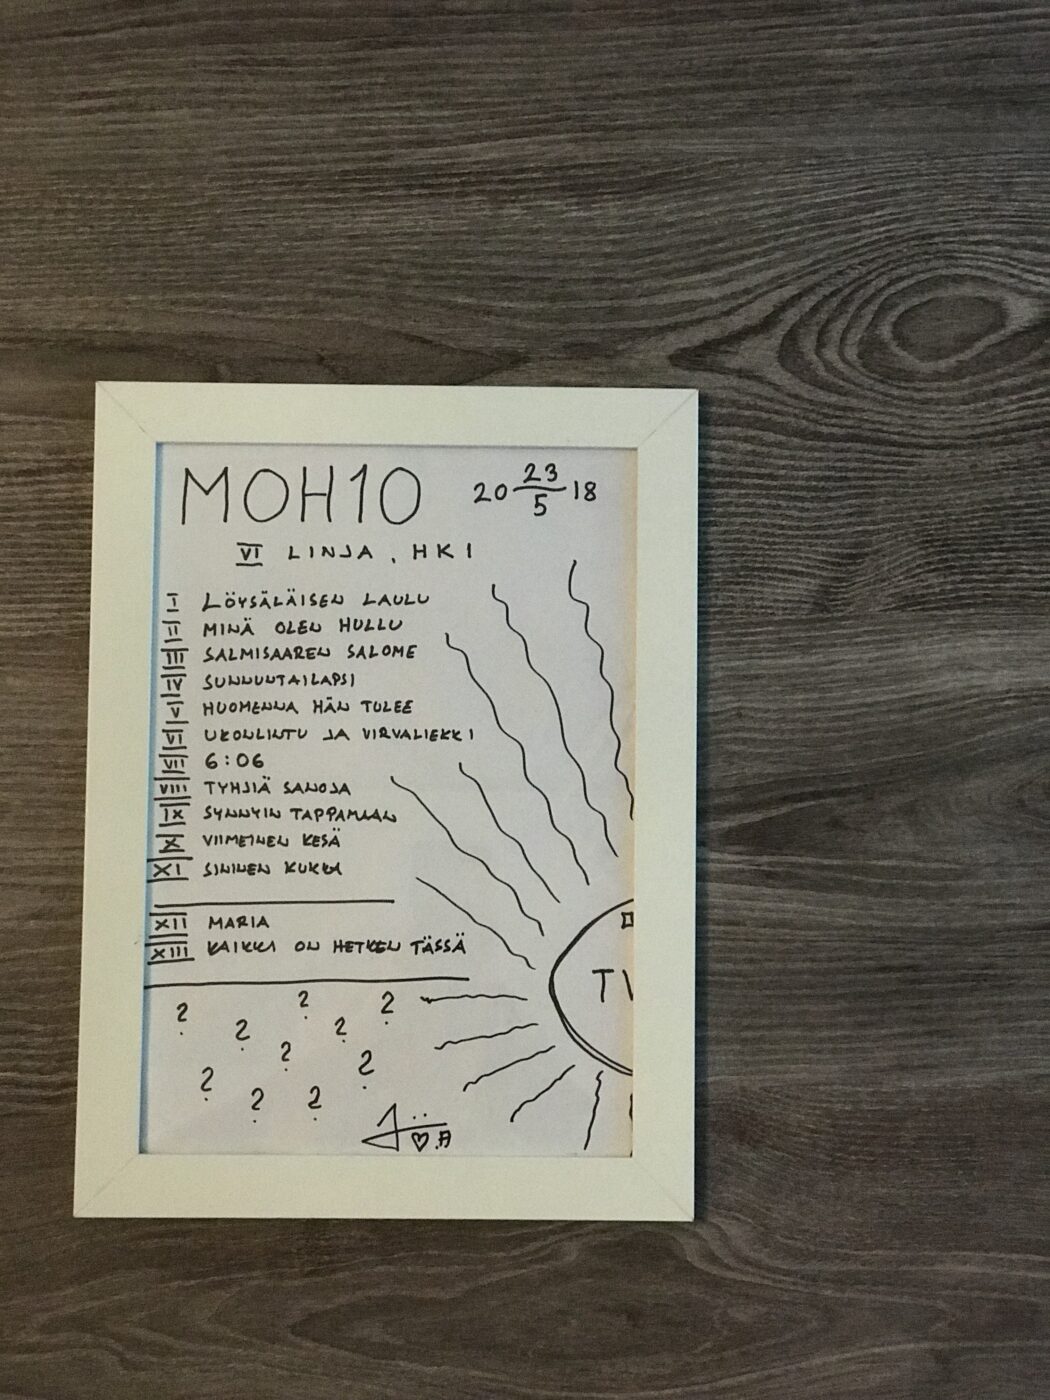 MOH10
20 23/5 18
VI LINJA, HKI
I LÖYSÄLÄISEN LAULU
II MINÄ OLEN HULLU
III SALMISAAREN SALOME
IV SUNNUNTAILAPSI
V HUOMENNA HÄN TULEE
VI UKONLINTU JA VIRVALIEKKI
VII 6:06
VIII TYHJIÄ SANOJA
IX SYNNYIN TAPPAMAAN
X VIIMEINEN KESÄ
XI SININEN KUKKA
XII MARIA
XIII KAIKKI ON HETKEN TÄSSÄ
? ? ?
? ?
? ?
? ? ?